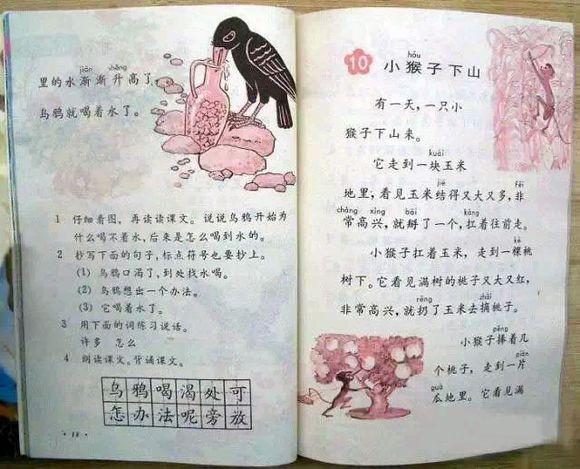 jiàn shēng
里的水渐渐升高了，
乌鸦就喝着水了。
1 仔细看图，再读读课文。说说乌鸦开始为
什么喝不着水，后来是怎么喝到水的。
2 抄写下面的句子，标点符号也要抄上。
(1) 乌鸦口渴了，到处找水喝。
(2) 乌鸦想出一个办法。
(3) 它喝着水了。
3 用下面的词练习说话。
许多 怎么
4 朗读课文。背诵课文。
乌鸦喝渴处可
怎办法呢旁放
hóu
10 小猴子下山
有一天，一只小
猴子下山来。
kuài
它走到一块玉米
jiē fēi
地里，看见玉米结得又大又多，非
cháng xìng bāi káng
常高兴，就掰了一个，扛着往前走。
小猴子扛着玉米，走到一棵桃
树下。它看见满树的桃子又大又红，
rēng zhāi
非常高兴，就扔了玉米去摘桃子。
pěng
小猴子捧着几
piàn
个桃子，走到一片
guā
瓜地里。它看见满